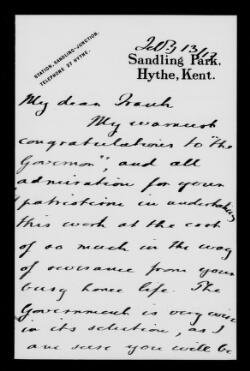 STATION, SANDLING-JUNCTION.
TELEPHONE 27 HYTHE.
Feb 13/17
Sandling Park.
Hythe, Kent.
My dear Frank
My warmest
congratulations to "the
Governor", and all
admiration for your
patriotism in undertaking
this work at the cost
of so much in the way
of severance from your
busy home life. The
Government is very wise
in its selection, as I
am sure you will be